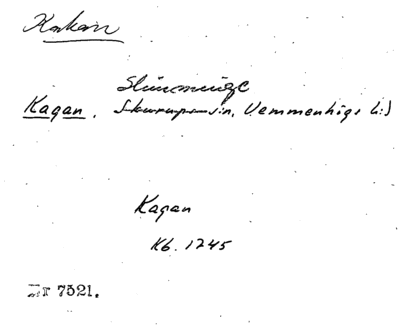 Kakan
Kagan. Skurups sn, Vemmenhögs hd
Kagan
Kb. 1745
Nr 7521.